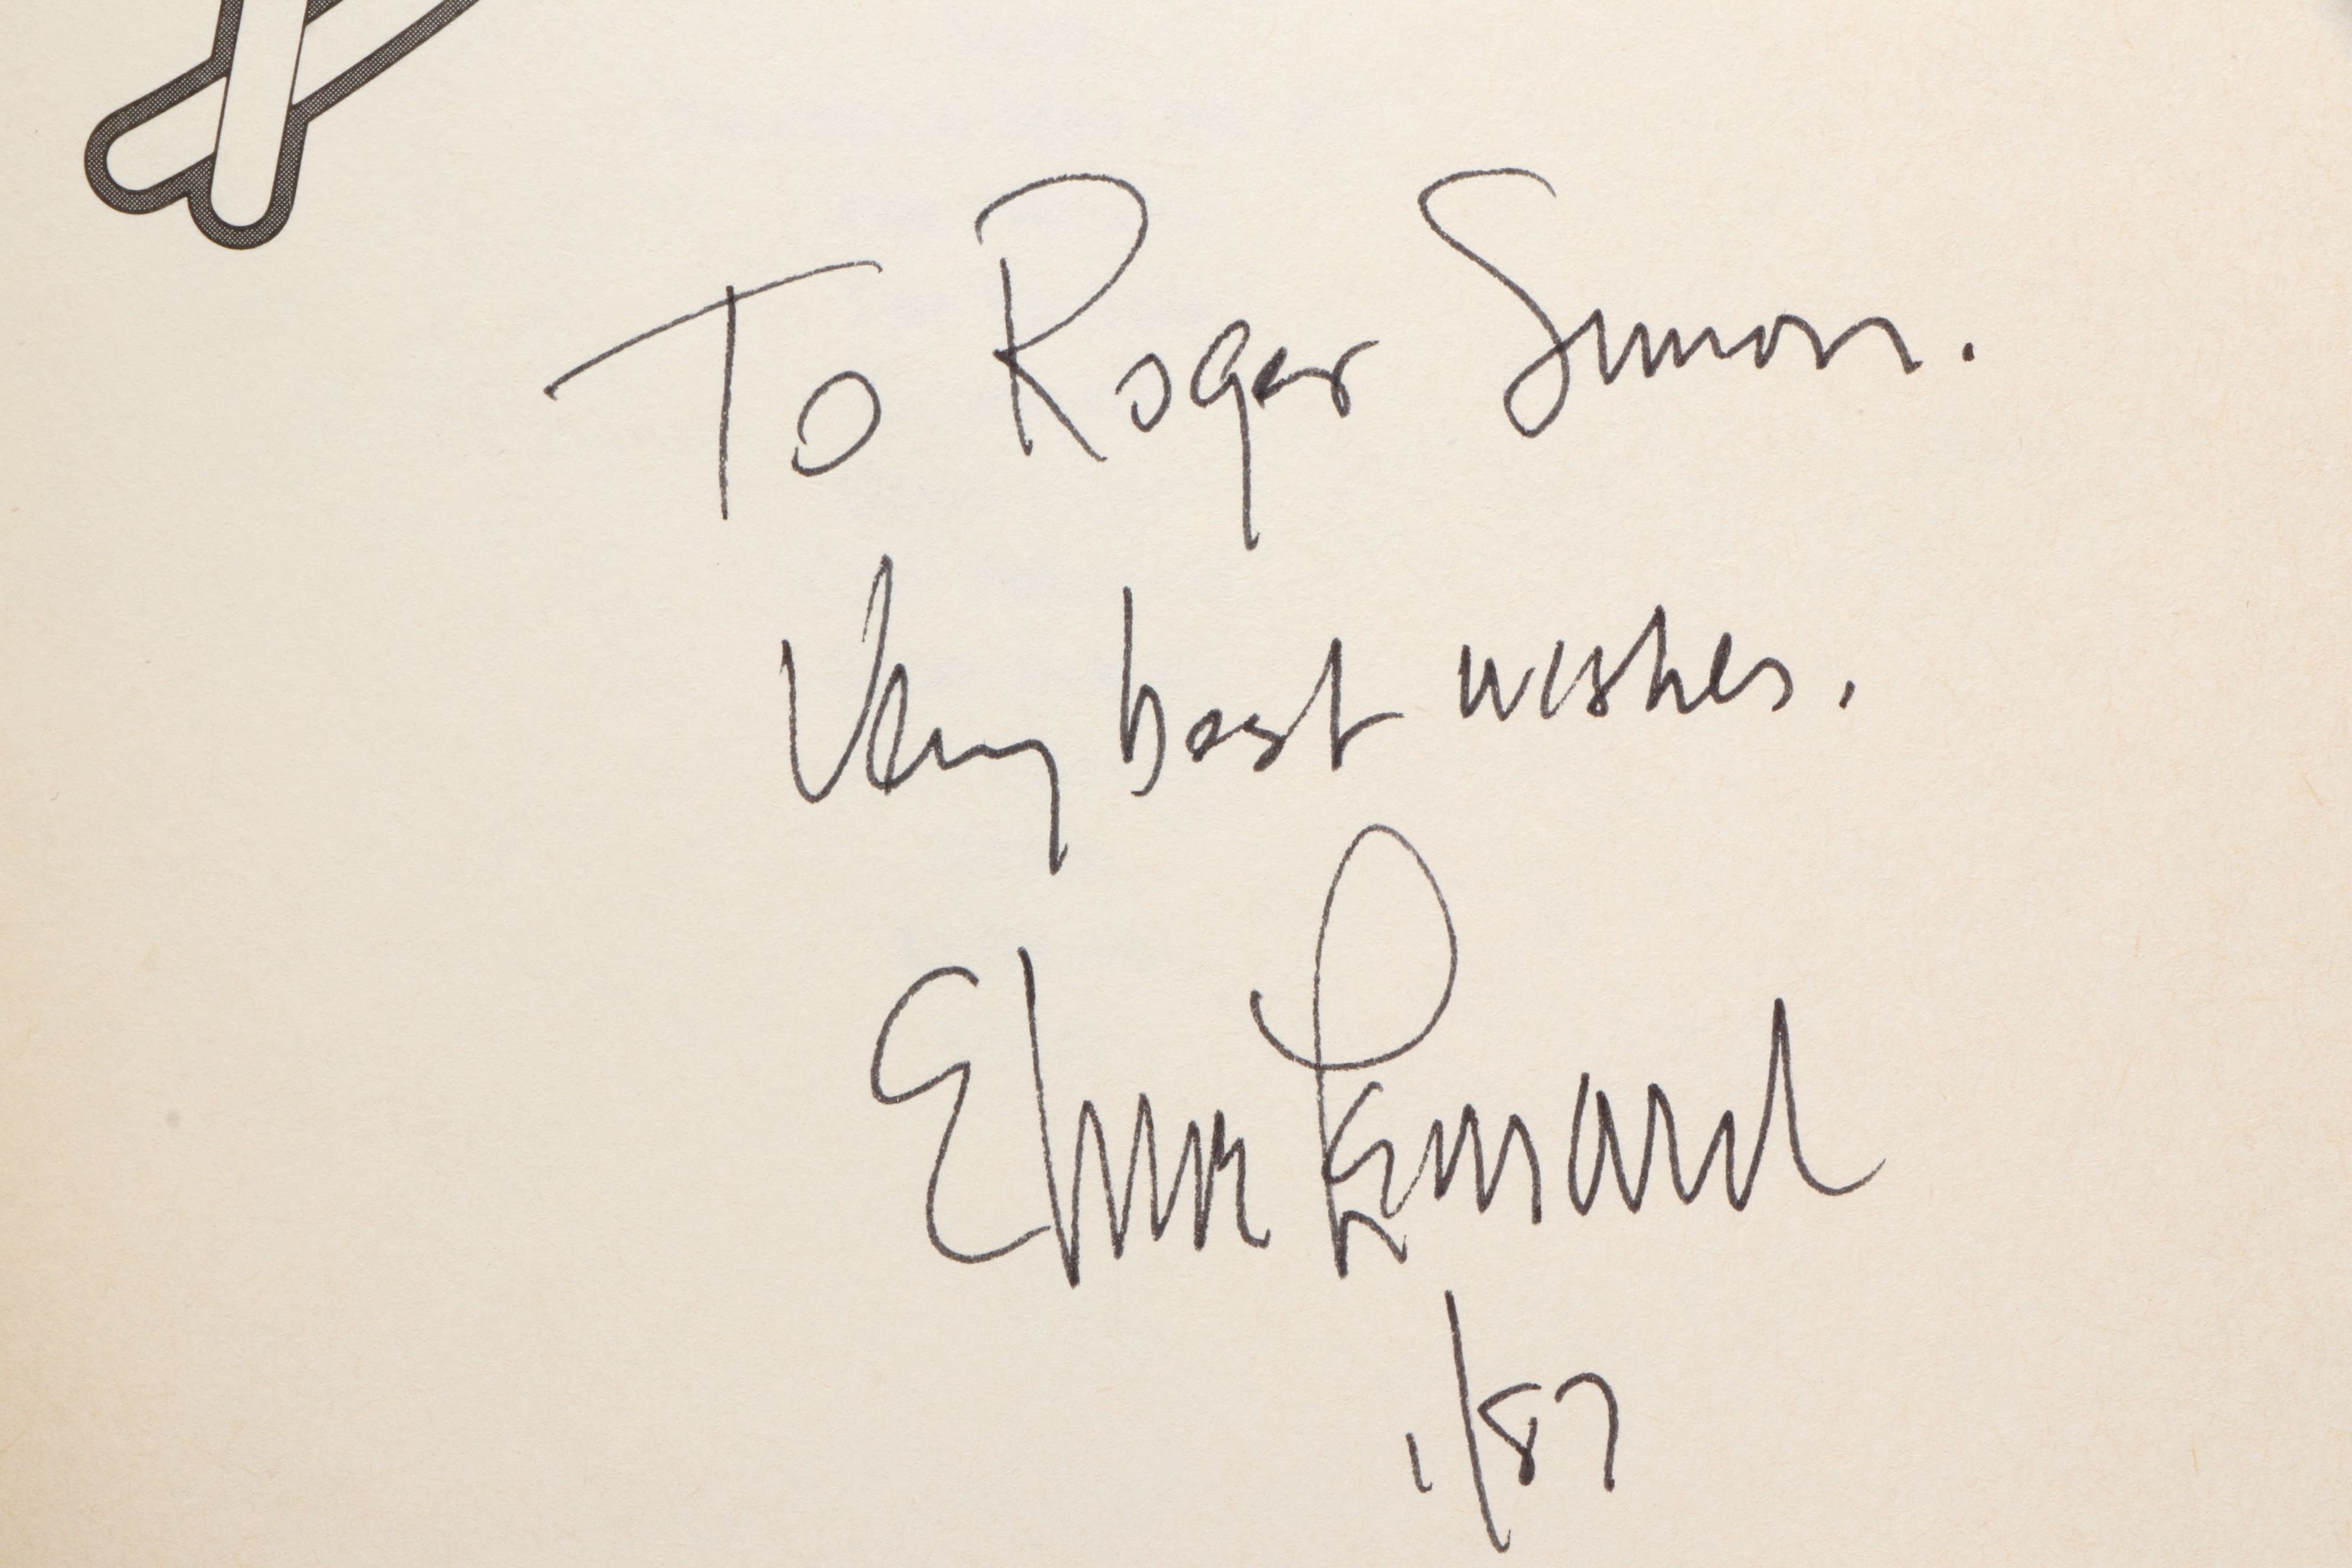 To Roger Simon.
Very best wishes.
Elmore Leonard
1/87